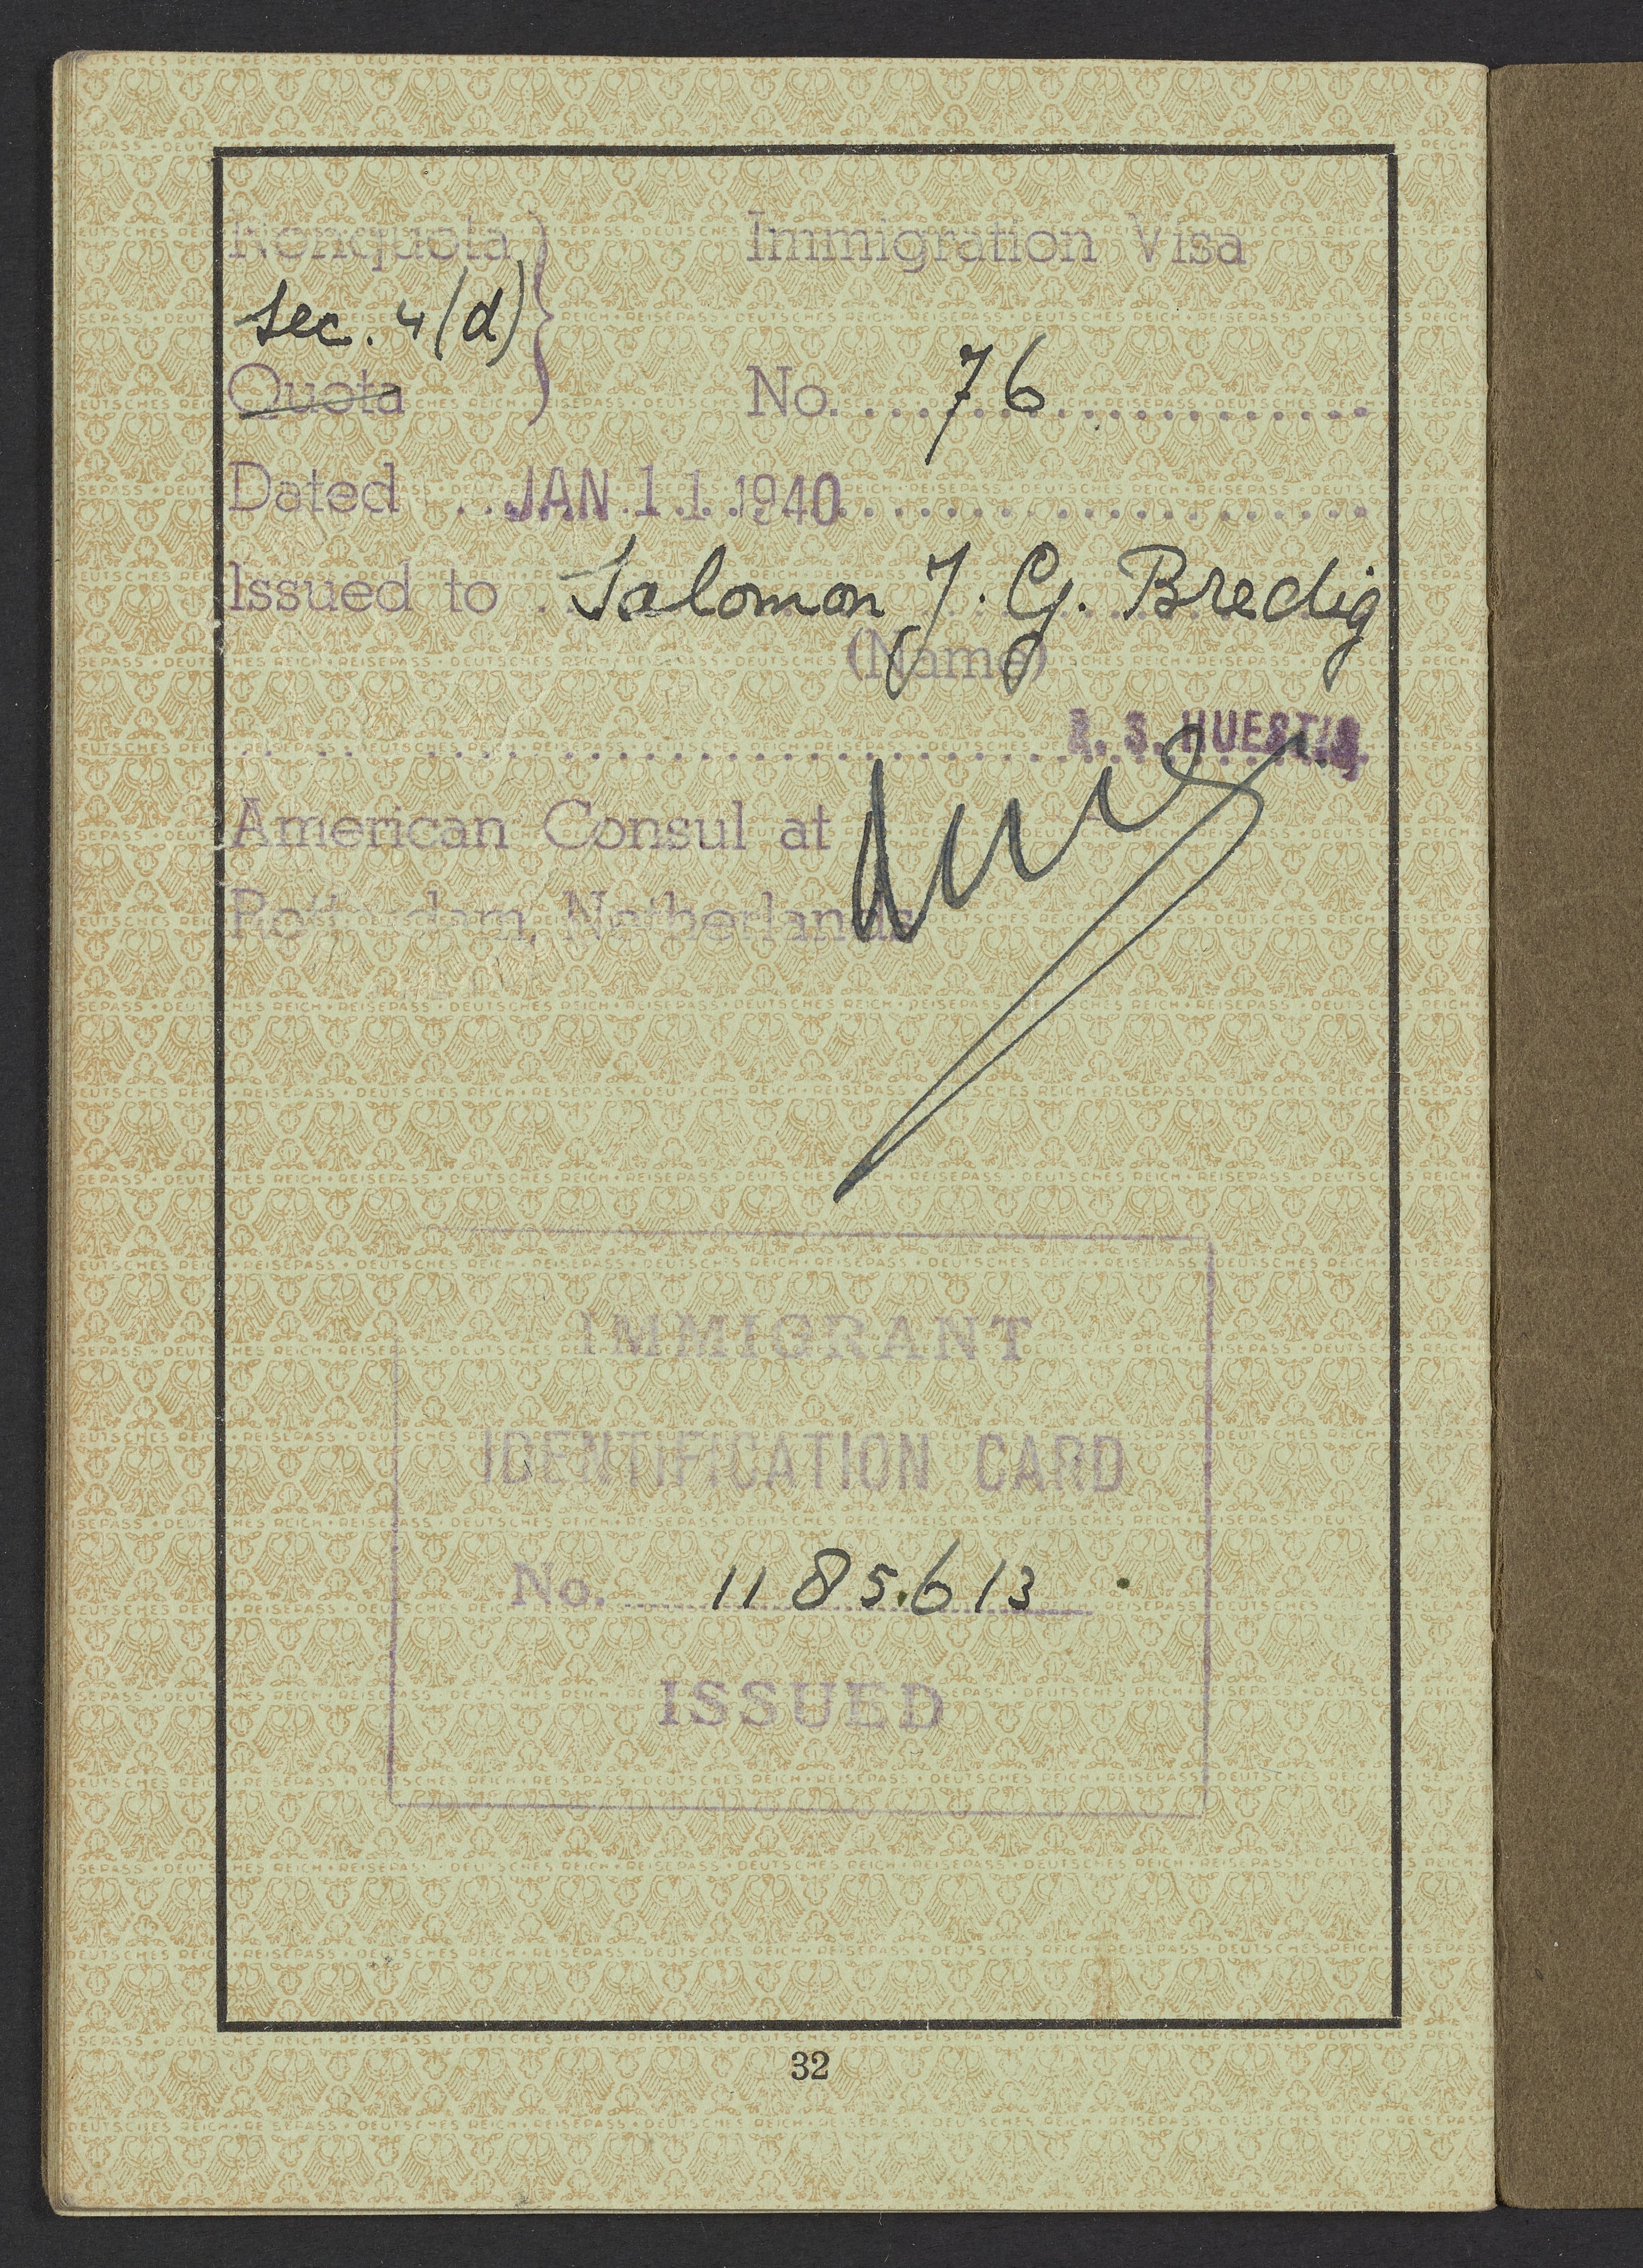 Nonquota } Immigration Visa
sec. 4(d)
Quota No. 76
Dated JAN 11 1940
Issued to Salomon J. G. Bredig
(Name)
R. S. HUESTIS
American Consul at
Rotterdam, Netherlands
IMMIGRANT
IDENTIFICATION CARD
No. 1185613
ISSUED
32